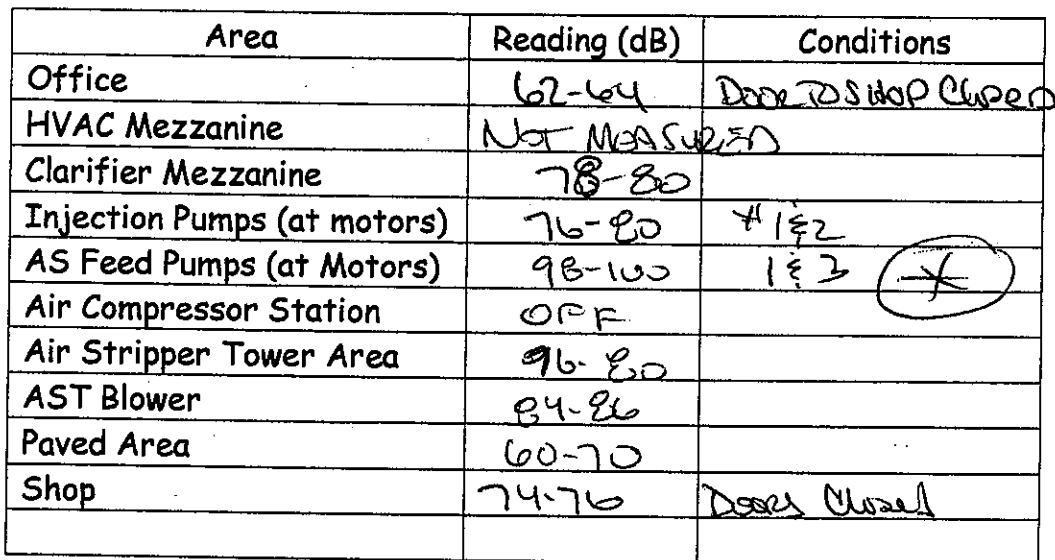 Area Reading (dB) Conditions
Office 62-64 Door To Shop Closed
HVAC Mezzanine Not Measured
Clarifier Mezzanine 78-80
Injection Pumps (at motors) 76-80 #1&2
AS Feed Pumps (at Motors) 98-100 1&3 *
Air Compressor Station OFF
Air Stripper Tower Area 96-80
AST Blower 84-86
Paved Area 60-70
Shop 74-76 Doors Closed